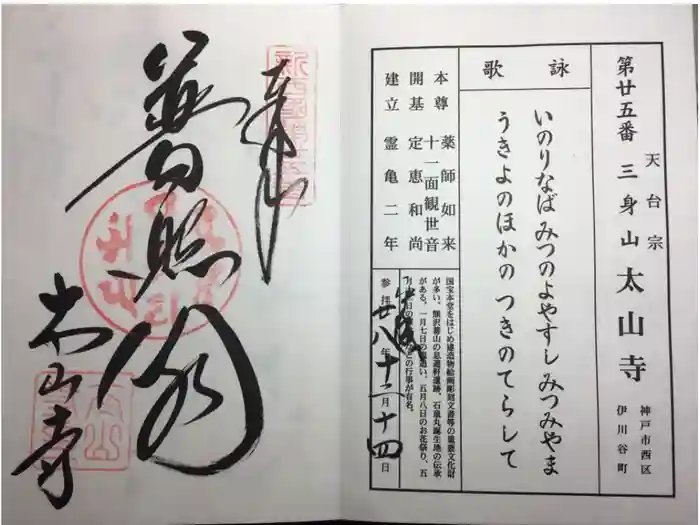 第廿五番 三身山 太山寺
天台宗
神戸市西区
伊川谷町
詠歌
いのりなばみつのよやすしみつみやま
うきよのほかのつきのてらして
本尊 薬師如来
十一面観世音
開基 定恵和尚
建立 霊亀二年
国宝本堂をはじめ建造物絵画彫刻文書等の重要文化財
が多い。
石童丸誕生地の伝承
がある。一月七日の鬼追い、五月八日のお花祭り、五
などの行事が有名。
参拝 平成廿八年十二月十四日
奉拝
普照殿
太山寺